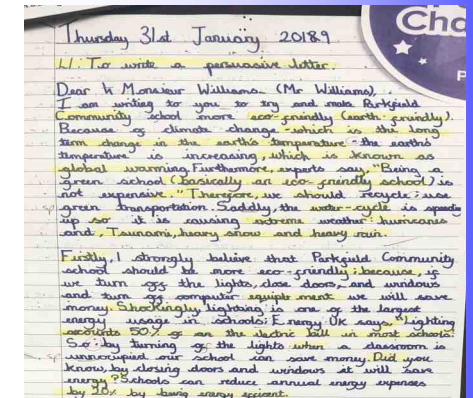 Cha
P
Thursday 31st January 20189
LI: To write a persuasive letter.
Dear Monsieur Williams (Mr Williams),
I am writing to you to try and make Parkfield
Community school more eco-friendly (earth friendly).
Because of climate change - which is the long
term change in the earth's temperature - the earths
temperature is increasing, which is known as
global warming. Furthermore, experts say, "Being a
green school (basically an eco-friendly school) is
not expensive." Therefore, we should recycle; use
green transportation. Saddly, the water-cycle is speeding
up so it is causing extreme weather: hurricanes
and, Tsunami, heavy snow and heavy rain.
Firstly, I strongly believe that Parkfield Community
school should be more eco-friendly: because, if
we turn off the lights, close doors, and windows
and turn off computer equiptment we will save
money. Shockingly lighting is one of the largest
energy usage in schools: Energy. UK says. "Lighting
accounts 50% of an the electric bill in most schools.
So: by turning of the lights when a classroom is
unnocupied our school can save money. Did you
know, by closing doors and windows it will save
energy? Schools can reduce annual energy expenses
by 20% by being energy